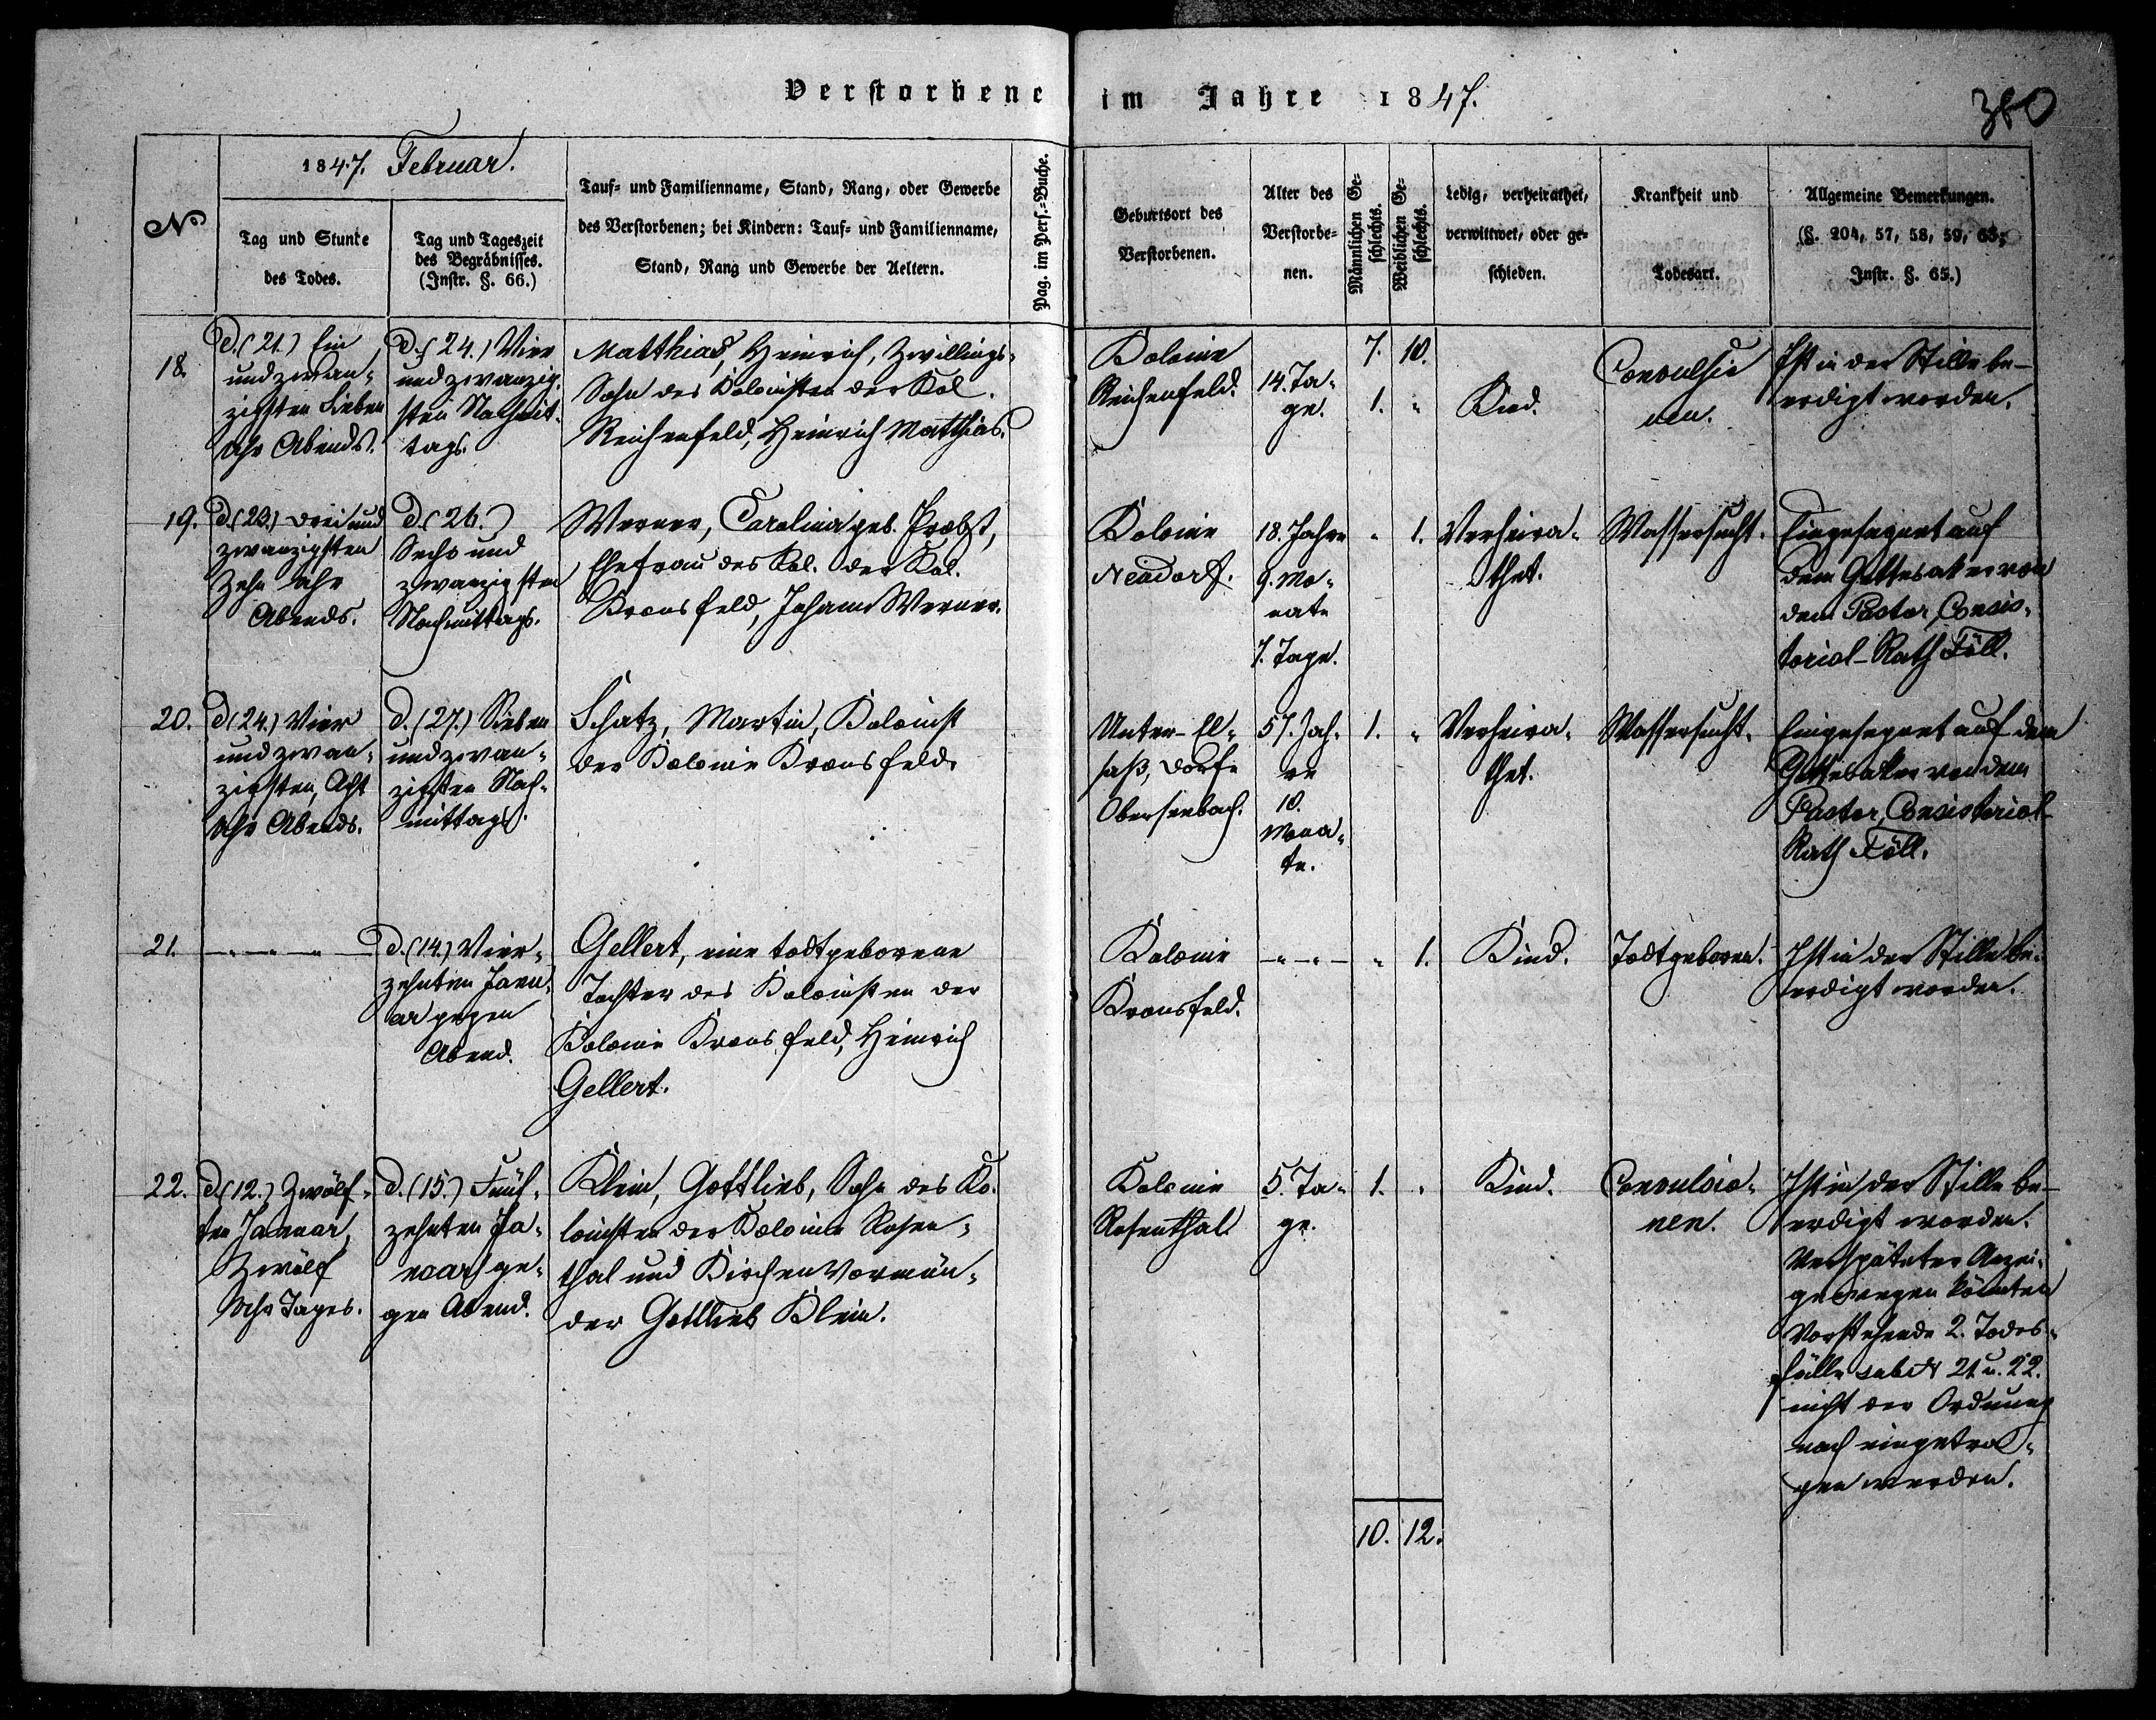 Verstorbene im Jahre 1847.
380
No
1847. Februar.
Tag und Stunde
des Todes.
Tag und Tageszeit
des Begräbnisses.
(Instr. §. 66.)
Tauf- und Familienname, Stand, Rang, oder Gewerbe
des Verstorbenen; bei Kindern: Tauf- und Familienname,
Stand, Rang und Gewerbe der Aeltern.
Pag. im Pers.-Buche.
Geburtsort des
Verstorbenen.
Alter des
Verstorbe-
nen.
Männlichen Ge-
schlechts.
Weiblichen Ge-
schlechts.
Ledig, verheirathet,
verwittwet, oder ge-
schieden.
Krankheit und
Todesart.
Allgemeine Bemerkungen.
(§. 204, 57, 58, 59, 63,
Instr. §. 65.)
18.
d. (21.) Ein
und zwan-
zigsten Sieben
Uhr Abends.
d. (24.) Vier
und zwanzig-
sten Nachmit-
tags.
Matthias, Heinrich, Zwillings-
Sohn des Kolonisten der Kol.
Reichenfeld, Heinrich Matthias.
Kolonie
Reichenfeld.
14. Ta-
ge.
7. 10.
1. "
Kind.
Convulsio
nen.
Ist in der Stille be-
erdigt worden.
19.
d. (23.) drei und
zwanzigsten
Zehn Uhr
Abends.
d. (26.)
Sechs und
zwanzigsten
Nachmittags.
Werner, Carolina geb. Probst,
Ehefrau des Kol. der Kol.
Kronsfeld, Johann Werner.
Kolonie
Neudorf.
18. Jahre
9. Mo-
nate
7. Tage.
" 1.
Verheira-
thet.
Wassersucht.
Eingesegnet auf
dem Gottesaker von
dem Pastor, Consis-
torial-Rath Föll.
20.
d. (24.) Vier
und zwan-
zigsten, Acht
Uhr Abends.
d. (27.) Sieben
und zwan-
zigsten Nach-
mittags.
Schatz, Martin, Kolonist
der Kolonie Kronsfeld.
Unter-El-
saß, Dorfe
Oberseebach.
57. Jah-
re
10.
Mona-
te.
1. "
Verheira-
thet.
Wassersucht.
Eingesegnet auf dem
Gottesaker von dem
Pastor, Consistorial-
Rath Föll.
21.
d. (14.) Vier-
zehnten Janu-
ar gegen
Abend.
Gellert, eine todtgeborene
Tochter des Kolonisten der
Kolonie Kronsfeld, Heinrich
Gellert.
Kolonie
Kronsfeld.
" 1.
Kind.
Todtgeboren.
Ist in der Stille be-
erdigt worden.
22.
d. (12.) Zwölf-
ten Januar,
Zwölf
Uhr Tages.
d. (15.) Fünf-
zehnten Ja-
nuar ge-
gen Abend.
Klein, Gottlieb, Sohn des Ko-
lonisten der Kolonie Rosen-
thal und Kirchen Vormün-
der Gottlieb Klein.
Kolonie
Rosenthal
5. Ta-
ge.
1. "
Kind.
Convulsio-
nen.
Ist in der Stille be-
erdigt worden.
Verspäteter Anzei-
ge wegen konnten
Vorstehende 2. Todes-
fälle sub № 21 u. 22.
nicht der Ordnung
nach eingetra-
gen werden.
10. 12.